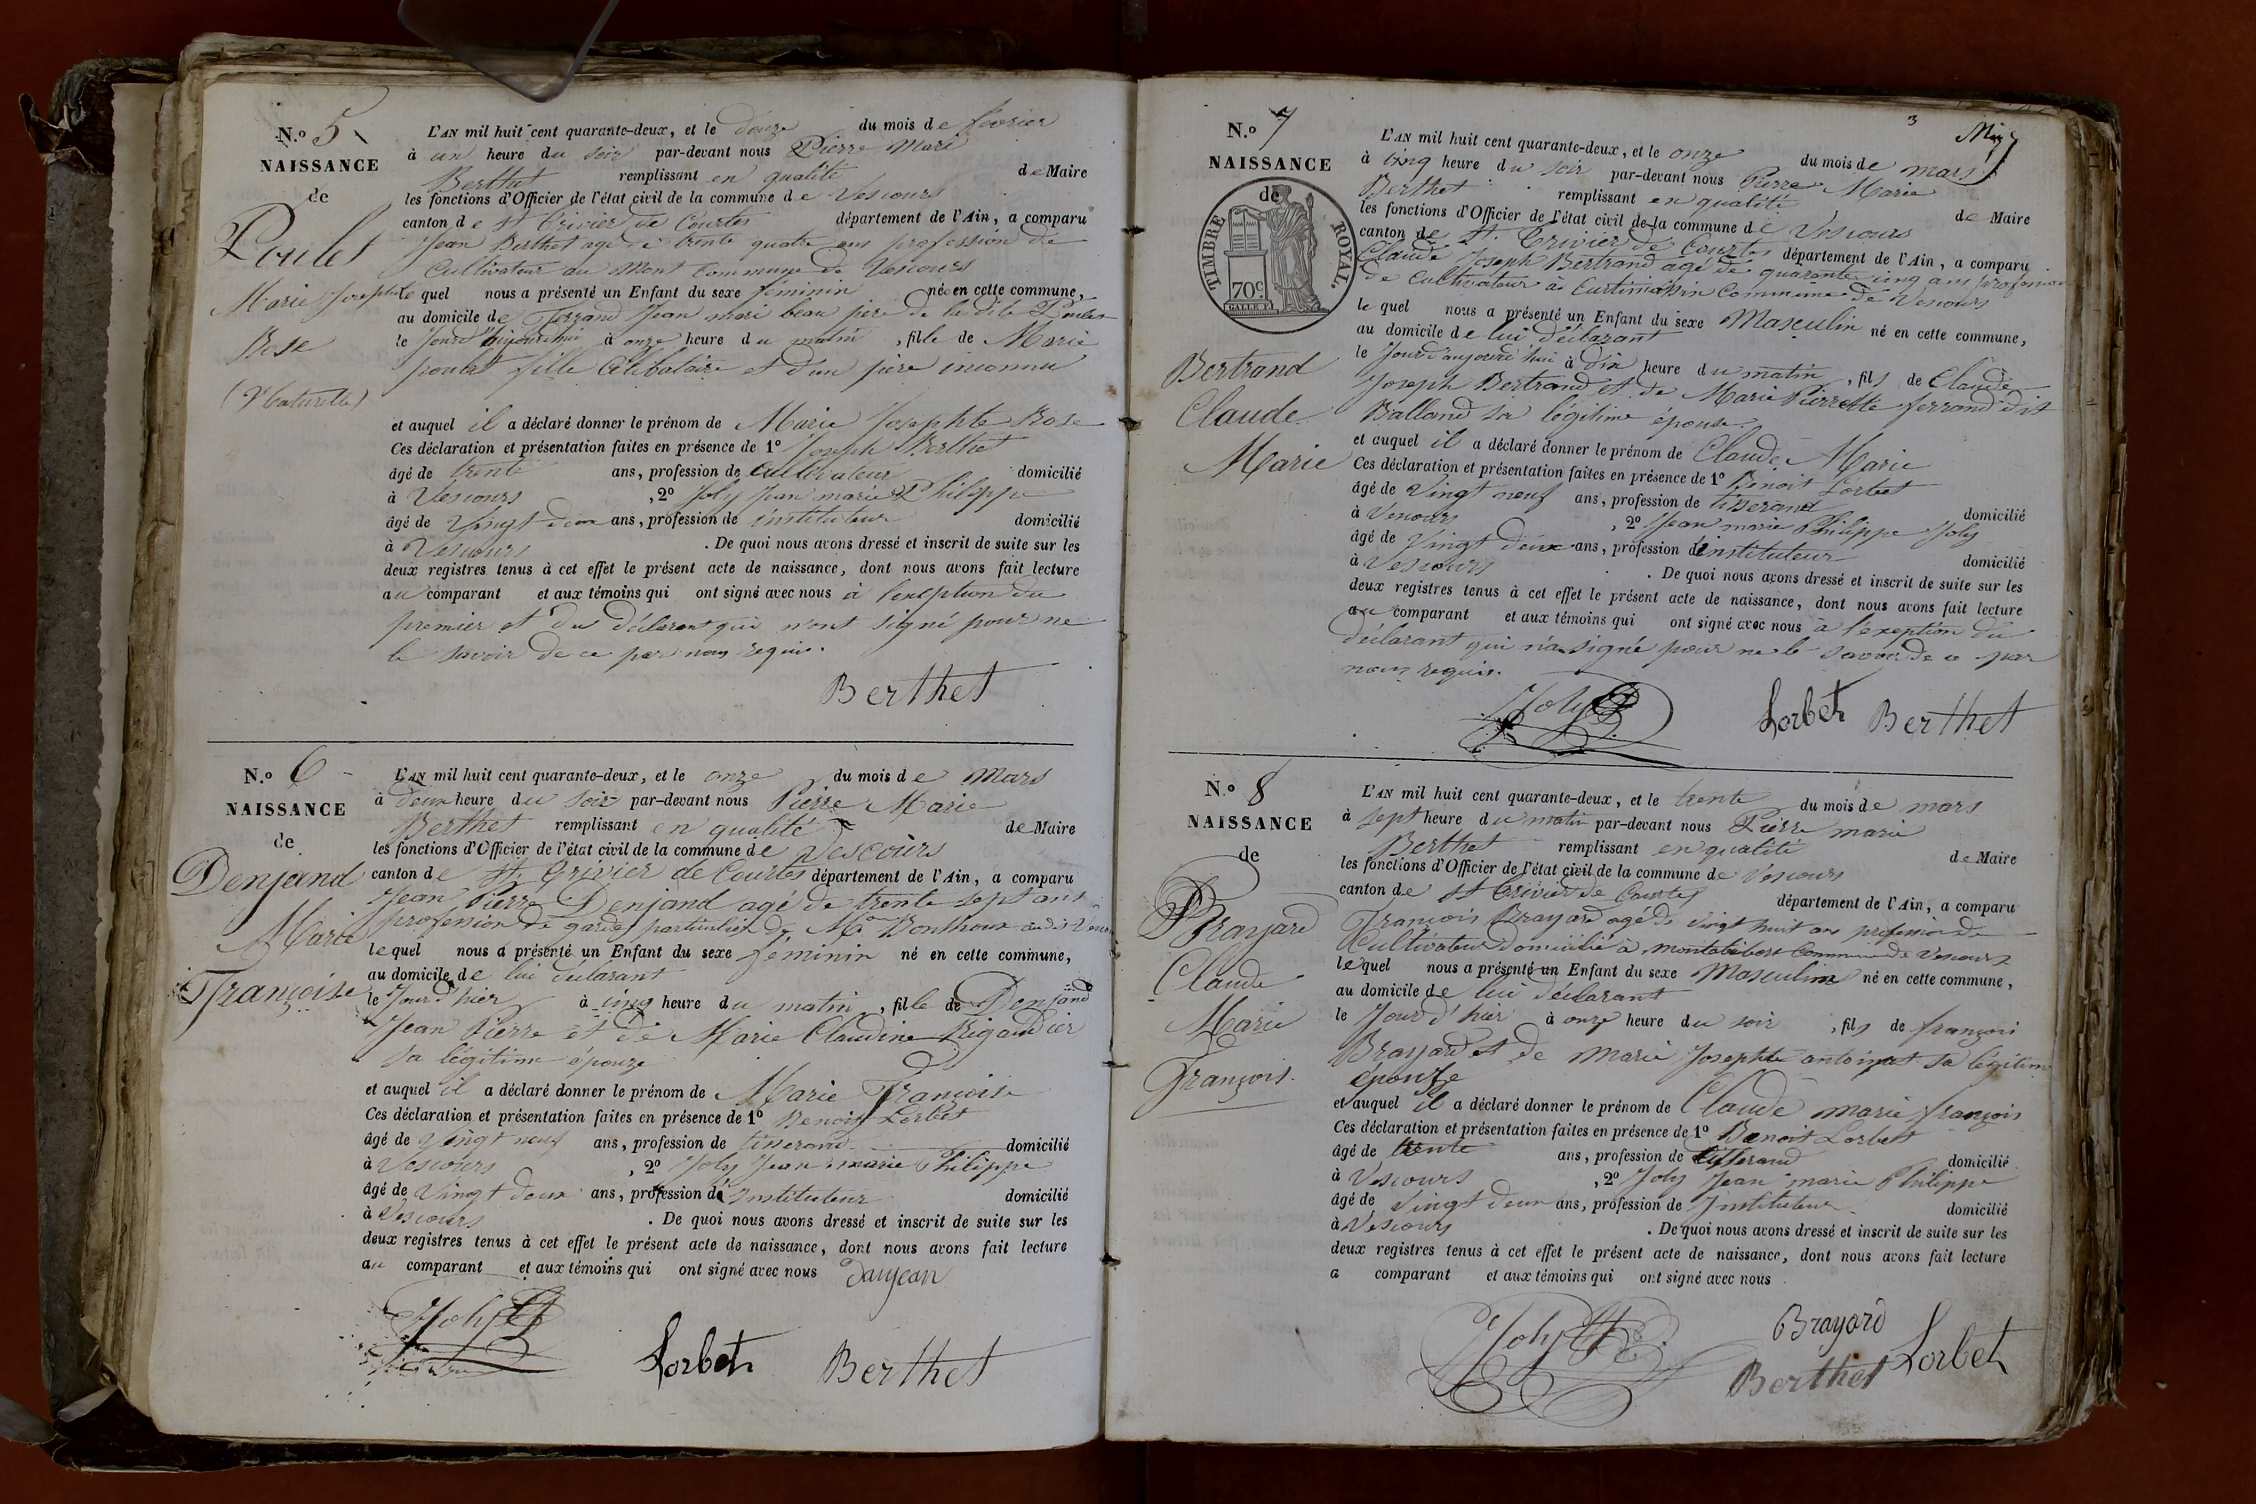 N.º 5
NAISSANCE
de
Poulet
Marie Josephte
Rose
(Naturelle)
L'AN mil huit cent quarante-deux, et le douze du mois de fevrier
à un heure du soir par-devant nous Pierre Marie
Berthet remplissant en qualité de Maire
les fonctions d'Officier de l'état civil de la commune de Vescours
canton de St Trivier de Courtes département de l'Ain, a comparu
Jean Berthet agé de trente quatre ans profession de
Cultivateur au Mont Commune de Vescours
le quel nous a présenté un Enfant du sexe féminin née en cette commune,
au domicile de Ferrand Jean marie beau père de la dite Poulet
le Jourd'hui à onze heure du matin, fille de Marie
poulet fille Célibataire et d'un père inconnu
et auquel il a déclaré donner le prénom de Marie Josephte Rose
Ces déclaration et présentation faites en présence de 1º Joseph Berthet
âgé de trente ans, profession de cultivateur domicilié
à Vescours, 2º Joly Jean marie Philippe
âgé de Vingt deux ans, profession de instituteur domicilié
à Vescours. De quoi nous avons dressé et inscrit de suite sur les
deux registres tenus à cet effet le présent acte de naissance, dont nous avons fait lecture
au comparant et aux témoins qui ont signé avec nous à l'enception du
premier et du déclarant qui n'ont signé pour ne
le savoir de ce par nous requis.
Berthet
N.º 6
NAISSANCE
de
Denjand
Marie
Françoise
L'AN mil huit cent quarante-deux, et le onze du mois de Mars
à deux heure du soir par-devant nous Pierre Marie
Berthet remplissant en qualité de Maire
les fonctions d'Officier de l'état civil de la commune de Vescours
canton de St Trivier de Courtes département de l'Ain, a comparu
Jean Pierre Denjand agé de trente sept ans
profession de garde particulier de Mr Donthoux
le quel nous a présenté un Enfant du sexe féminin né en cette commune,
au domicile de lui déclarant
le Jour d'hier à cinq heure du matin, fille de Denjand
Jean Pierre et de Marie Claudine Rigaudier
Sa légitime épouze
et auquel il a déclaré donner le prénom de Marie Françoise
Ces déclaration et présentation faites en présence de 1º Benoit Lorbet
âgé de vingt neuf ans, profession de tisserand domicilié
à Vescours, 2º Joly Jean marie Philippe
âgé de Vingt deux ans, profession d'instituteur domicilié
à Vescours. De quoi nous avons dressé et inscrit de suite sur les
deux registres tenus à cet effet le présent acte de naissance, dont nous avons fait lecture
au comparant et aux témoins qui ont signé avec nous danjean
Joly
Lorbet Berthet
3
N.º 7
NAISSANCE
de
TIMBRE ROYAL
70 c
Bertrand
Claude
Marie
L'AN mil huit cent quarante-deux, et le onze du mois de mars
à cinq heure du soir par-devant nous Pierre Marie
Berthet remplissant en qualité de Maire
les fonctions d'Officier de l'état civil de la commune de Vescours
canton de St. Trivier de Courtes département de l'Ain, a comparu
Claude Joseph Bertrand agé de quarante cinq ans profession
de Cultivateur à Curtimassin Commune de Vescours
le quel nous a présenté un Enfant du sexe Masculin né en cette commune,
au domicile de lui déclarant
le Jour d'aujourd'hui à dix heure du matin, fils de Claude
Joseph Bertrand et de Marie Pierrette ferrand dit
Balland Sa légitime épouse
et auquel il a déclaré donner le prénom de Claude Marie
Ces déclaration et présentation faites en présence de 1º Benoit Lorbet
âgé de Vingt neuf ans, profession de tisserand domicilié
à Vescours, 2º Jean marie Philippe Joly
âgé de Vingt deux ans, profession d'instituteur domicilié
à Vescours. De quoi nous avons dressé et inscrit de suite sur les
deux registres tenus à cet effet le présent acte de naissance, dont nous avons fait lecture
au comparant et aux témoins qui ont signé avec nous à l'exeption du
déclarant qui n'a signé pour ne le savoir de ce par
nous requis.
Joly Lorbet Berthet
N.º 8
NAISSANCE
de
Brayard
Claude
Marie
François.
L'AN mil huit cent quarante-deux, et le trente du mois de mars
à sept heure du matin par-devant nous Pierre marie
Berthet remplissant en qualité de Maire
les fonctions d'Officier de l'état civil de la commune de Vescours
canton de St Trivier de Courtes département de l'Ain, a comparu
François Brayard agé de vingt huit ans profession de
Cultivateur domicilié à montalibort Commune de Vescours
le quel nous a présenté un Enfant du sexe Masculin né en cette commune,
au domicile de lui déclarant
le Jour d'hier à onze heure du soir, fils de françois
Brayard et de Marie Josephte antoinat Sa légitime
épouze
et auquel il a déclaré donner le prénom de Claude marie françois
Ces déclaration et présentation faites en présence de 1º Benoit Lorbet
âgé de trente ans, profession de tisserand domicilié
à Vescours, 2º Joly Jean marie Philippe
âgé de Vingt deux ans, profession de Instituteur domicilié
à Vescours. De quoi nous avons dressé et inscrit de suite sur les
deux registres tenus à cet effet le présent acte de naissance, dont nous avons fait lecture
a comparant et aux témoins qui ont signé avec nous
Joly Brayard
Berthet Lorbet